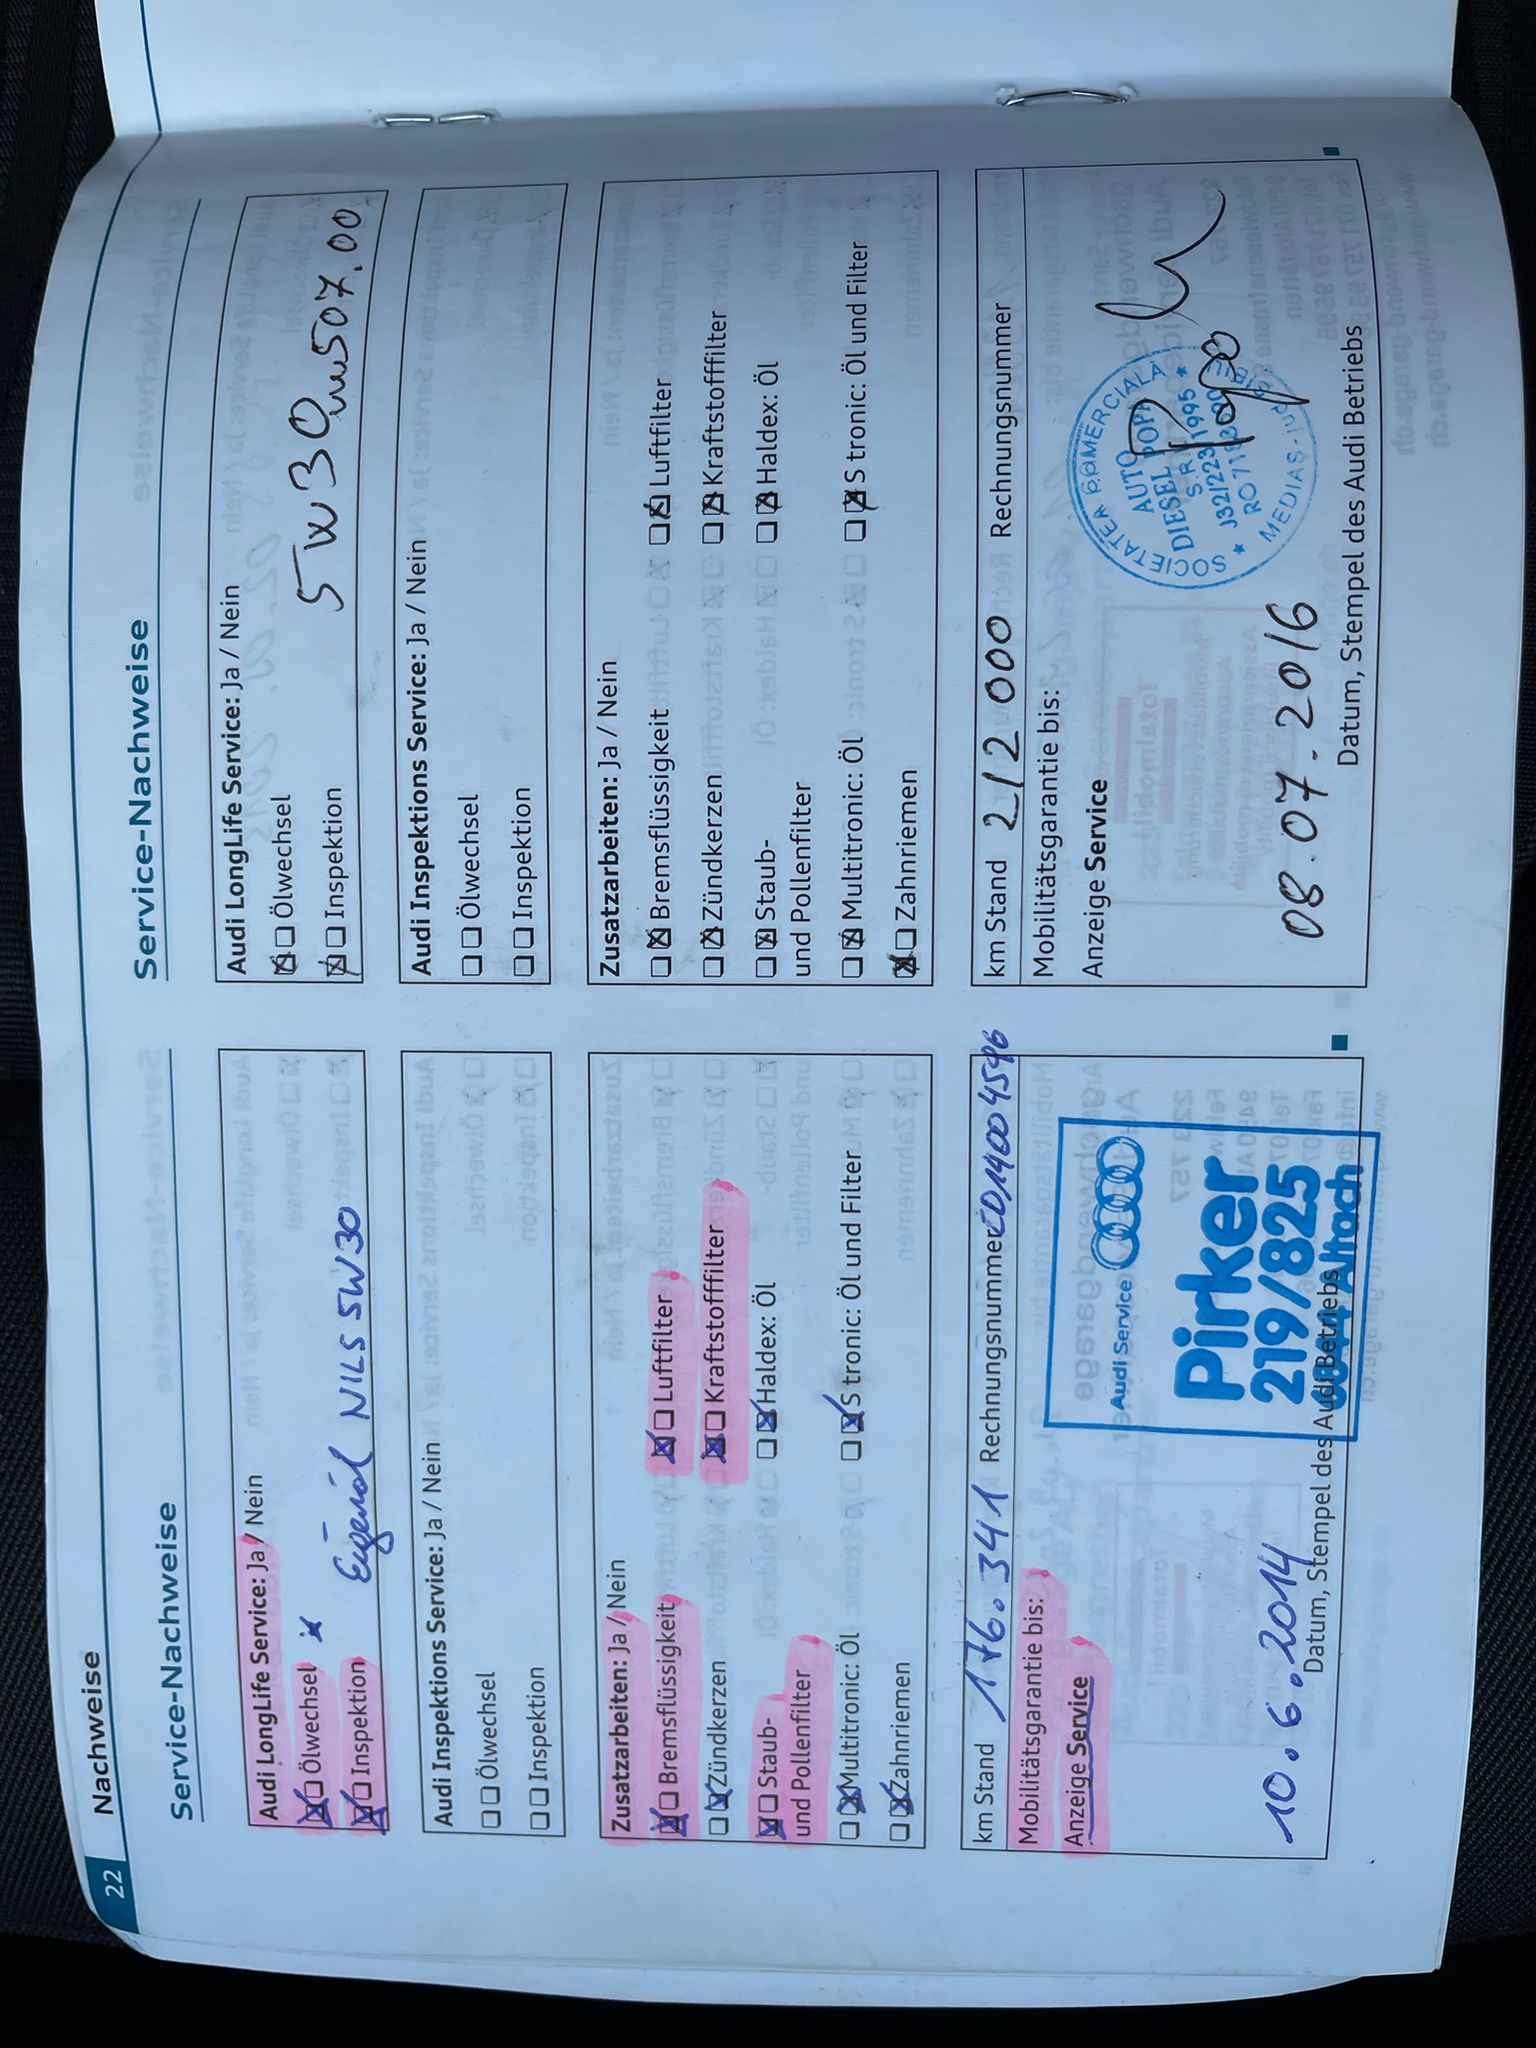 22 Nachweise
Service-Nachweise
Audi LongLife Service: Ja / Nein
Ölwechsel
Inspektion
NILS 5W30
Audi Inspektions Service: Ja / Nein
Ölwechsel
Inspektion
Zusatzarbeiten: Ja / Nein
Bremsflüssigkeit Luftfilter
Zündkerzen Kraftstofffilter
Staub- Haldex: Öl
und Pollenfilter
Multitronic: Öl S tronic: Öl und Filter
Zahnriemen
km Stand 176.341 Rechnungsnummer
Mobilitätsgarantie bis:
Anzeige Service
Audi Service
Pirker
219/825
Altach
10.6.2014
Datum, Stempel des Audi Betriebs
Service-Nachweise
Audi LongLife Service: Ja / Nein
Ölwechsel
Inspektion
5W30 507.00
Audi Inspektions Service: Ja / Nein
Ölwechsel
Inspektion
Zusatzarbeiten: Ja / Nein
Bremsflüssigkeit Luftfilter
Zündkerzen Kraftstofffilter
Staub- Haldex: Öl
und Pollenfilter
Multitronic: Öl S tronic: Öl und Filter
Zahnriemen
km Stand 212000 Rechnungsnummer
Mobilitätsgarantie bis:
Anzeige Service
SOCIETATEA COMERCIALĂ
AUTO
DIESEL POPA
S.R.L.
MEDIAȘ - jud. SIBIU
08.07.2016
Datum, Stempel des Audi Betriebs